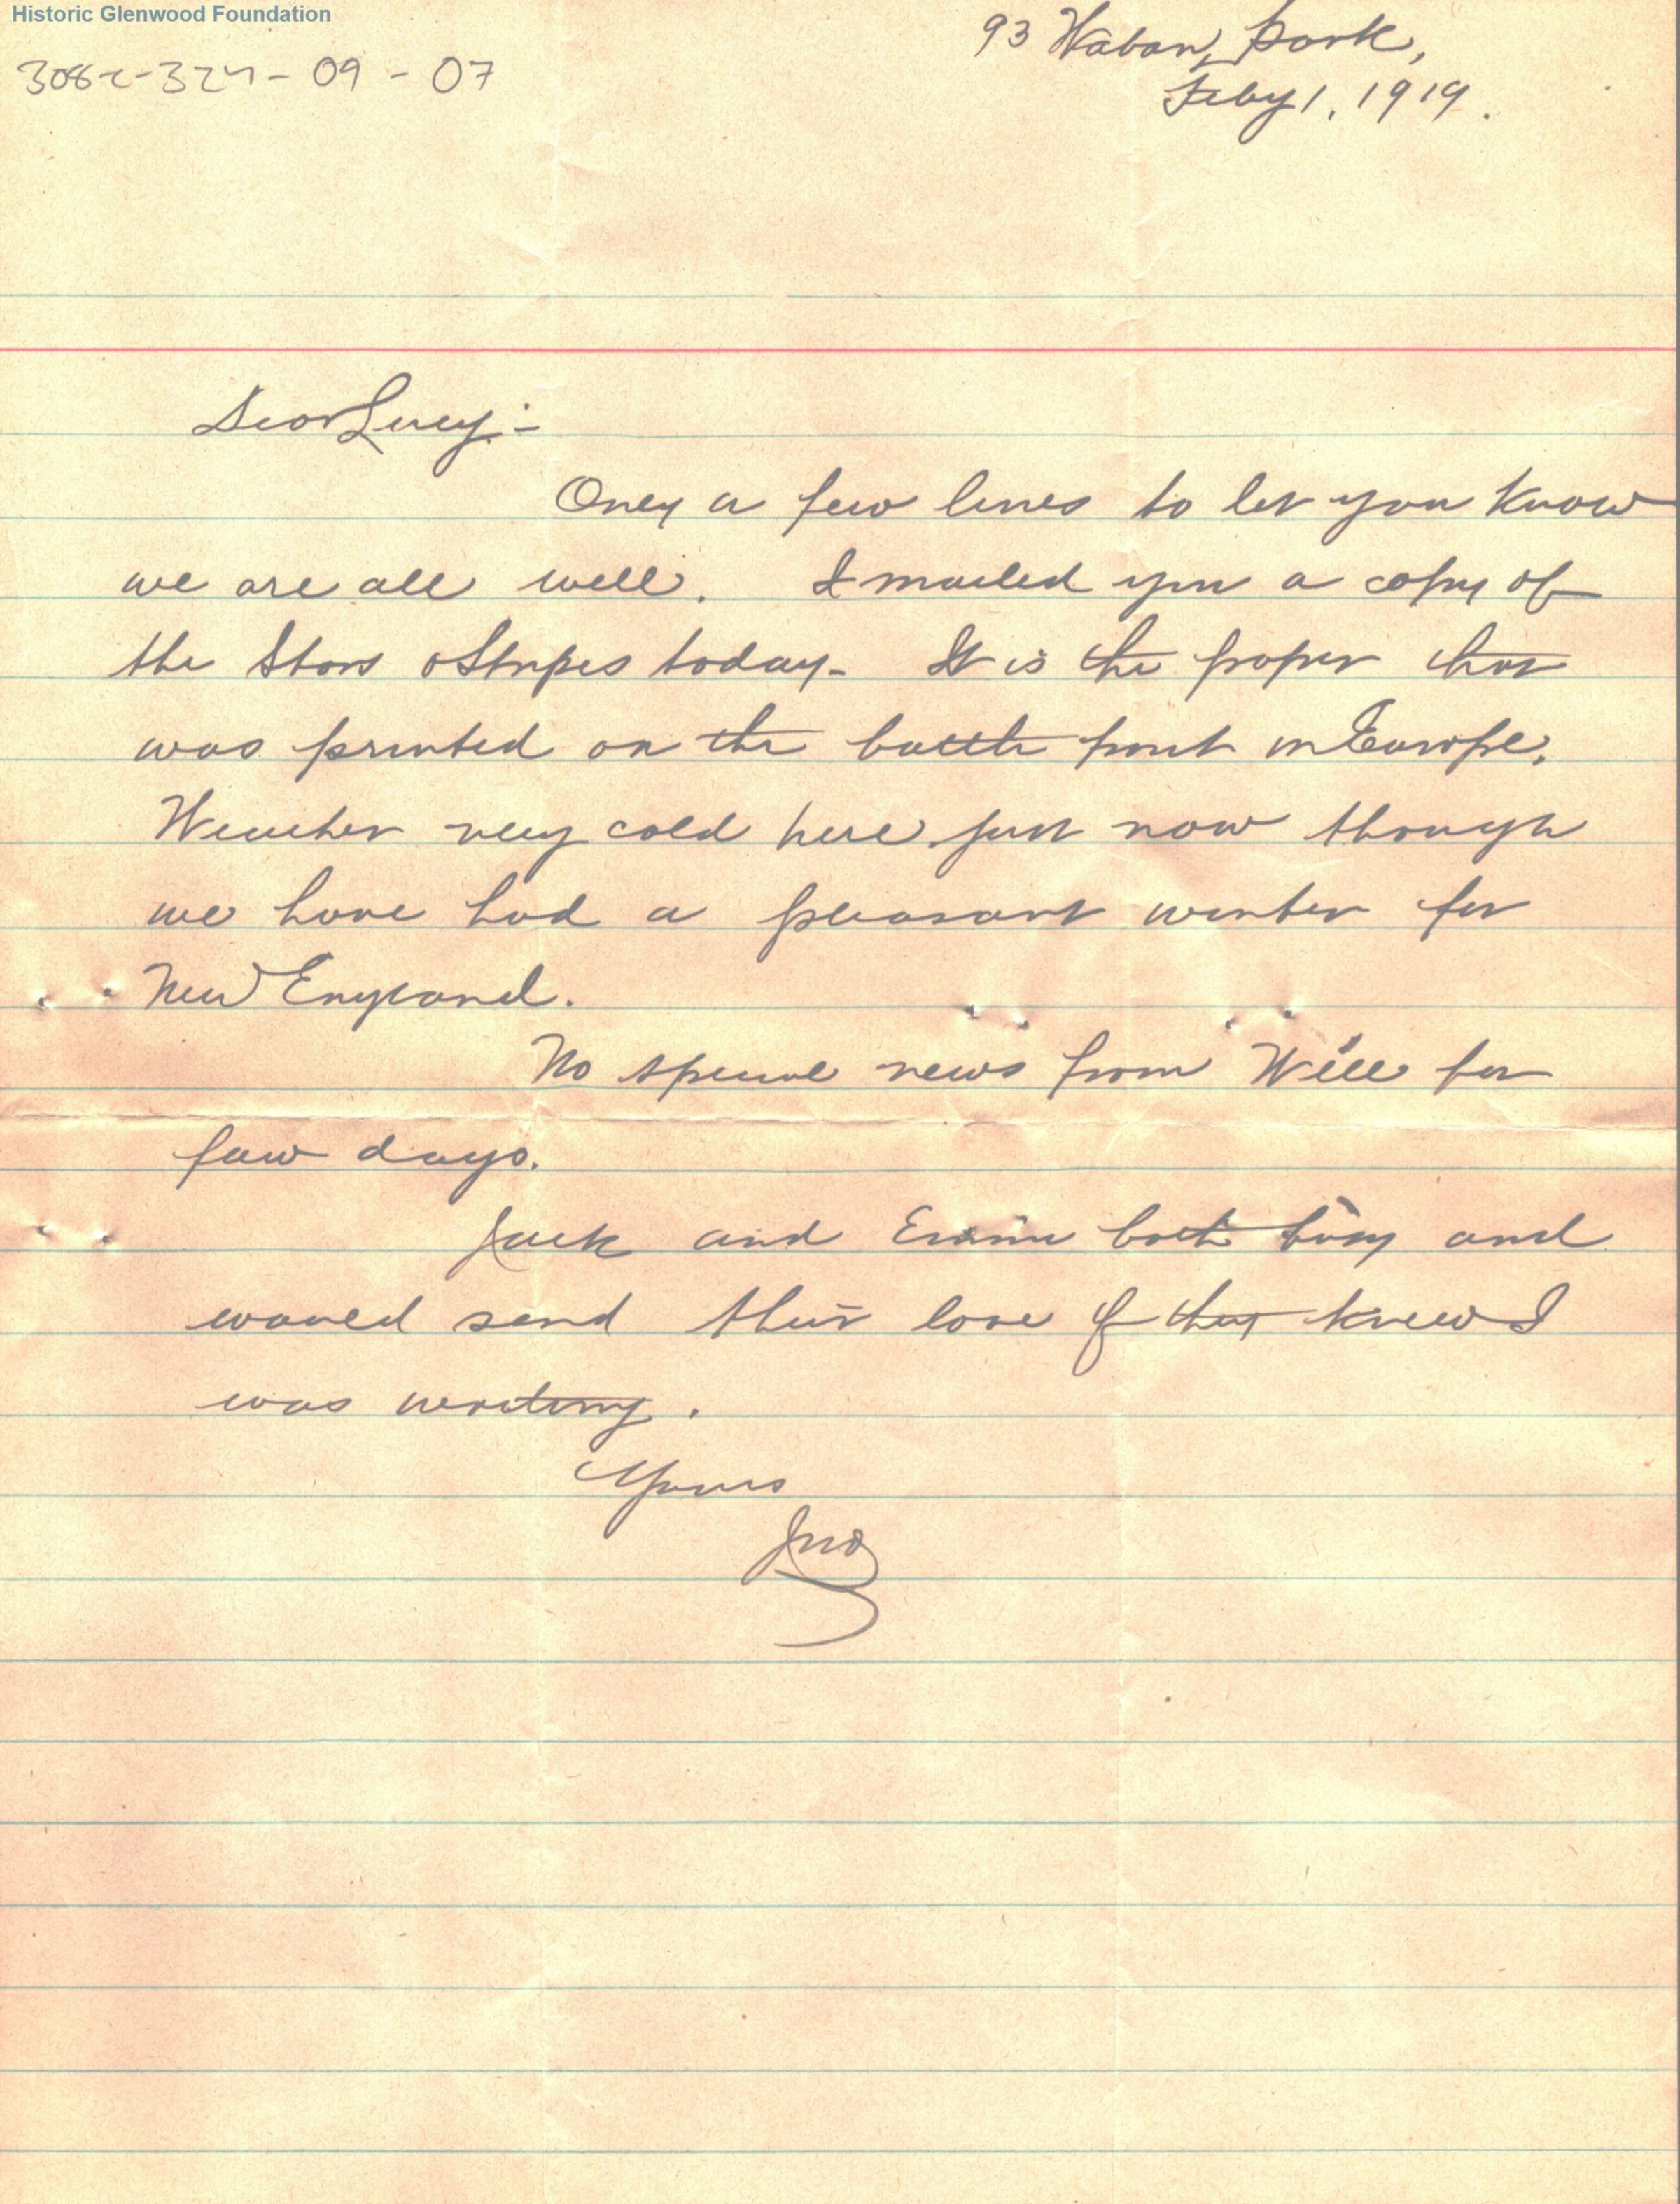 Historic Glenwood Foundation
3082-324-09-07
93 Waban Park,
Feby 1, 1919.
Dear Lucy:-
Only a few lines to let you know
we are all well. I mailed you a copy of
the Stars & Stripes today - It is the paper that
was printed on the battle front in Europe.
Weather very cold here just now though
we have had a pleasant winter for
New England.
No special news from Will for
few days.
Jack and both busy and
would send their love if they knew I
was writing.
Yours
Jno